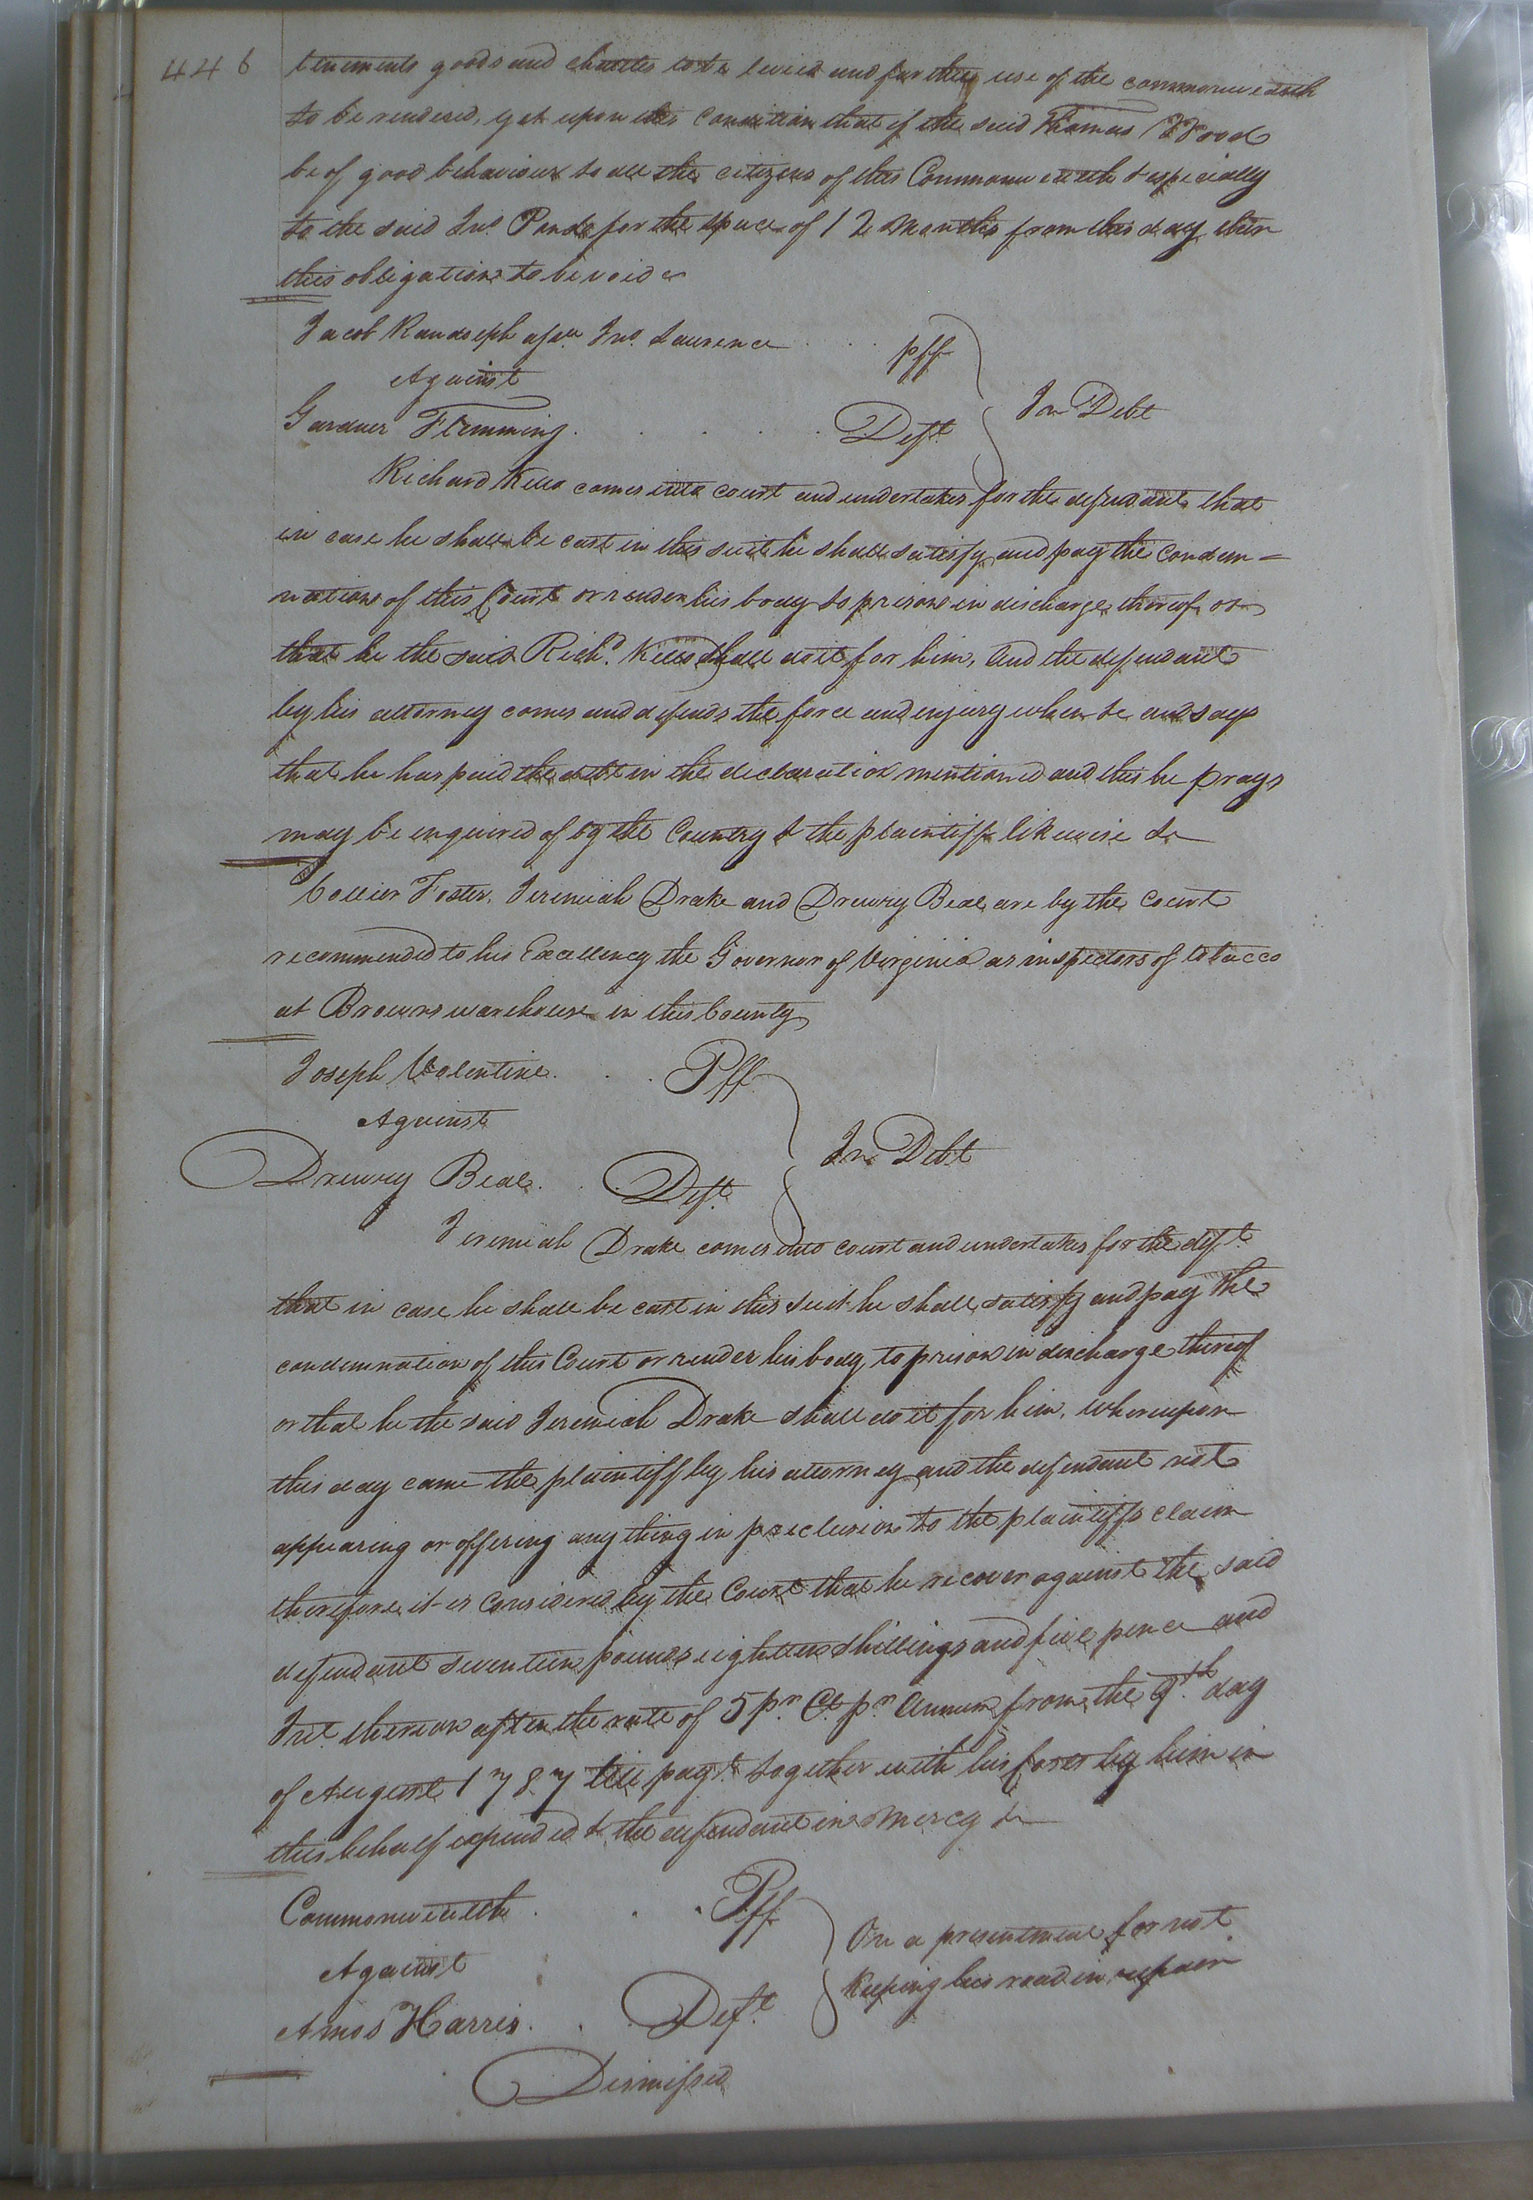 446
tenements goods and chattes to be levied and for the use of the commonwealth
to be rendered, yet upon this Condition that if the said Thomas Wood
be of good behaviour to all the citizens of this Commonwealth & especially
to the said Jno. Pond for the space of 12 months from this day then
this obligation to be void
Jacob Randolph assee. Jno. Laurence pff
Against
In Debt
Gardner Flemming Deft.
Richard Kello comes into court and undertakes for the defendant that
in case he shall be cast in this suit he shall satisfy and pay the Condem=
nation of this Court or render his body to prison in discharge thereof or
that he the said Richd. Kello shall do it for him, And the defendant
by his attorney comes and defends the force and injury when &c and says
that he has paid the debt in the declaration mentioned and this he prays
may be inquired of by the Country & the plaintiff likewise &c
Collier Foster, Jeremiah Drake and Drewry Beal are by the Court
recommended to his Excellency the Governor of Virginia as inspectors of tobacco
at Browns warehouse in this County
Joseph Valentine Pff
Against
In Debt
Drewry Beal Deft.
Jeremiah Drake comes into court and undertakes for the deft.
that in case he shall be cast in this suit he shall satisfy and pay the
condemnation of this Court or render his body to prison in discharge thereof
or that he the said Jeremiah Drake shall do it for him, whereupon
this day came the plaintiff by his attorney and the defendant not
appearing or offering any thing in preclusion to the plaintiffs claim
therefore it is Considered by the Court that he recover against the said
defendant seventeen pounds eighteen shillings and five pence and
Int. thereon after the rate of 5 pr. Ct. pr. Annum from the 9th. day
of August 1787 till payt. together with his costs by him in
this behalf expended & the defendant in mercy &c
Commonwealth Pff
On a presentment for not
Against
Keeping his road in repair
Amos Harris Deft.
Dismissed